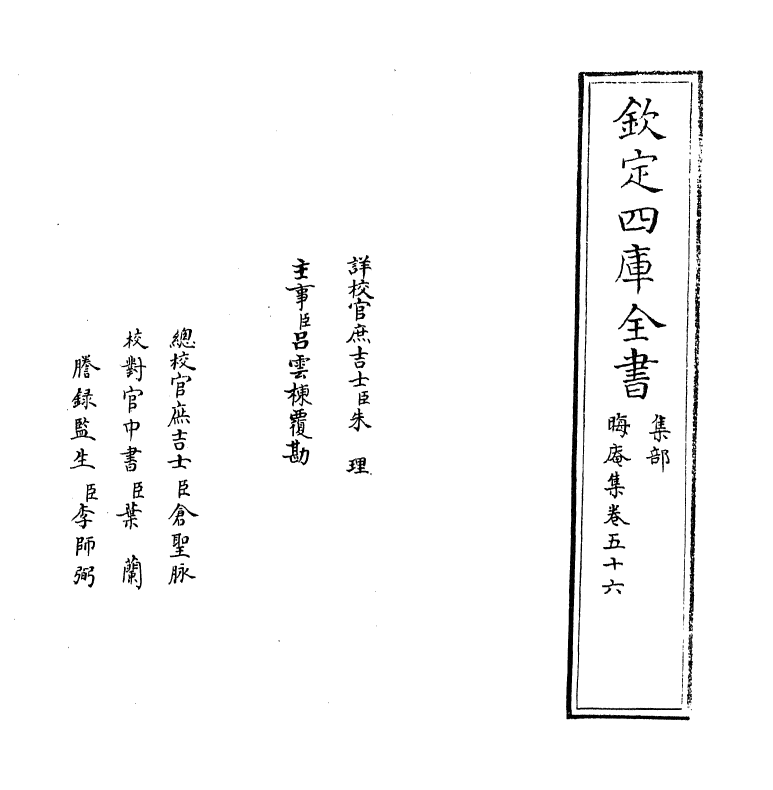 欽定四庫全書
集部
晦庵集卷五十六
詳校官庶吉士臣朱理
主事臣呂雲棟覆勘
總校官庶吉士臣倉聖脉
校對官中書臣葉蘭
謄録監生臣李師弼